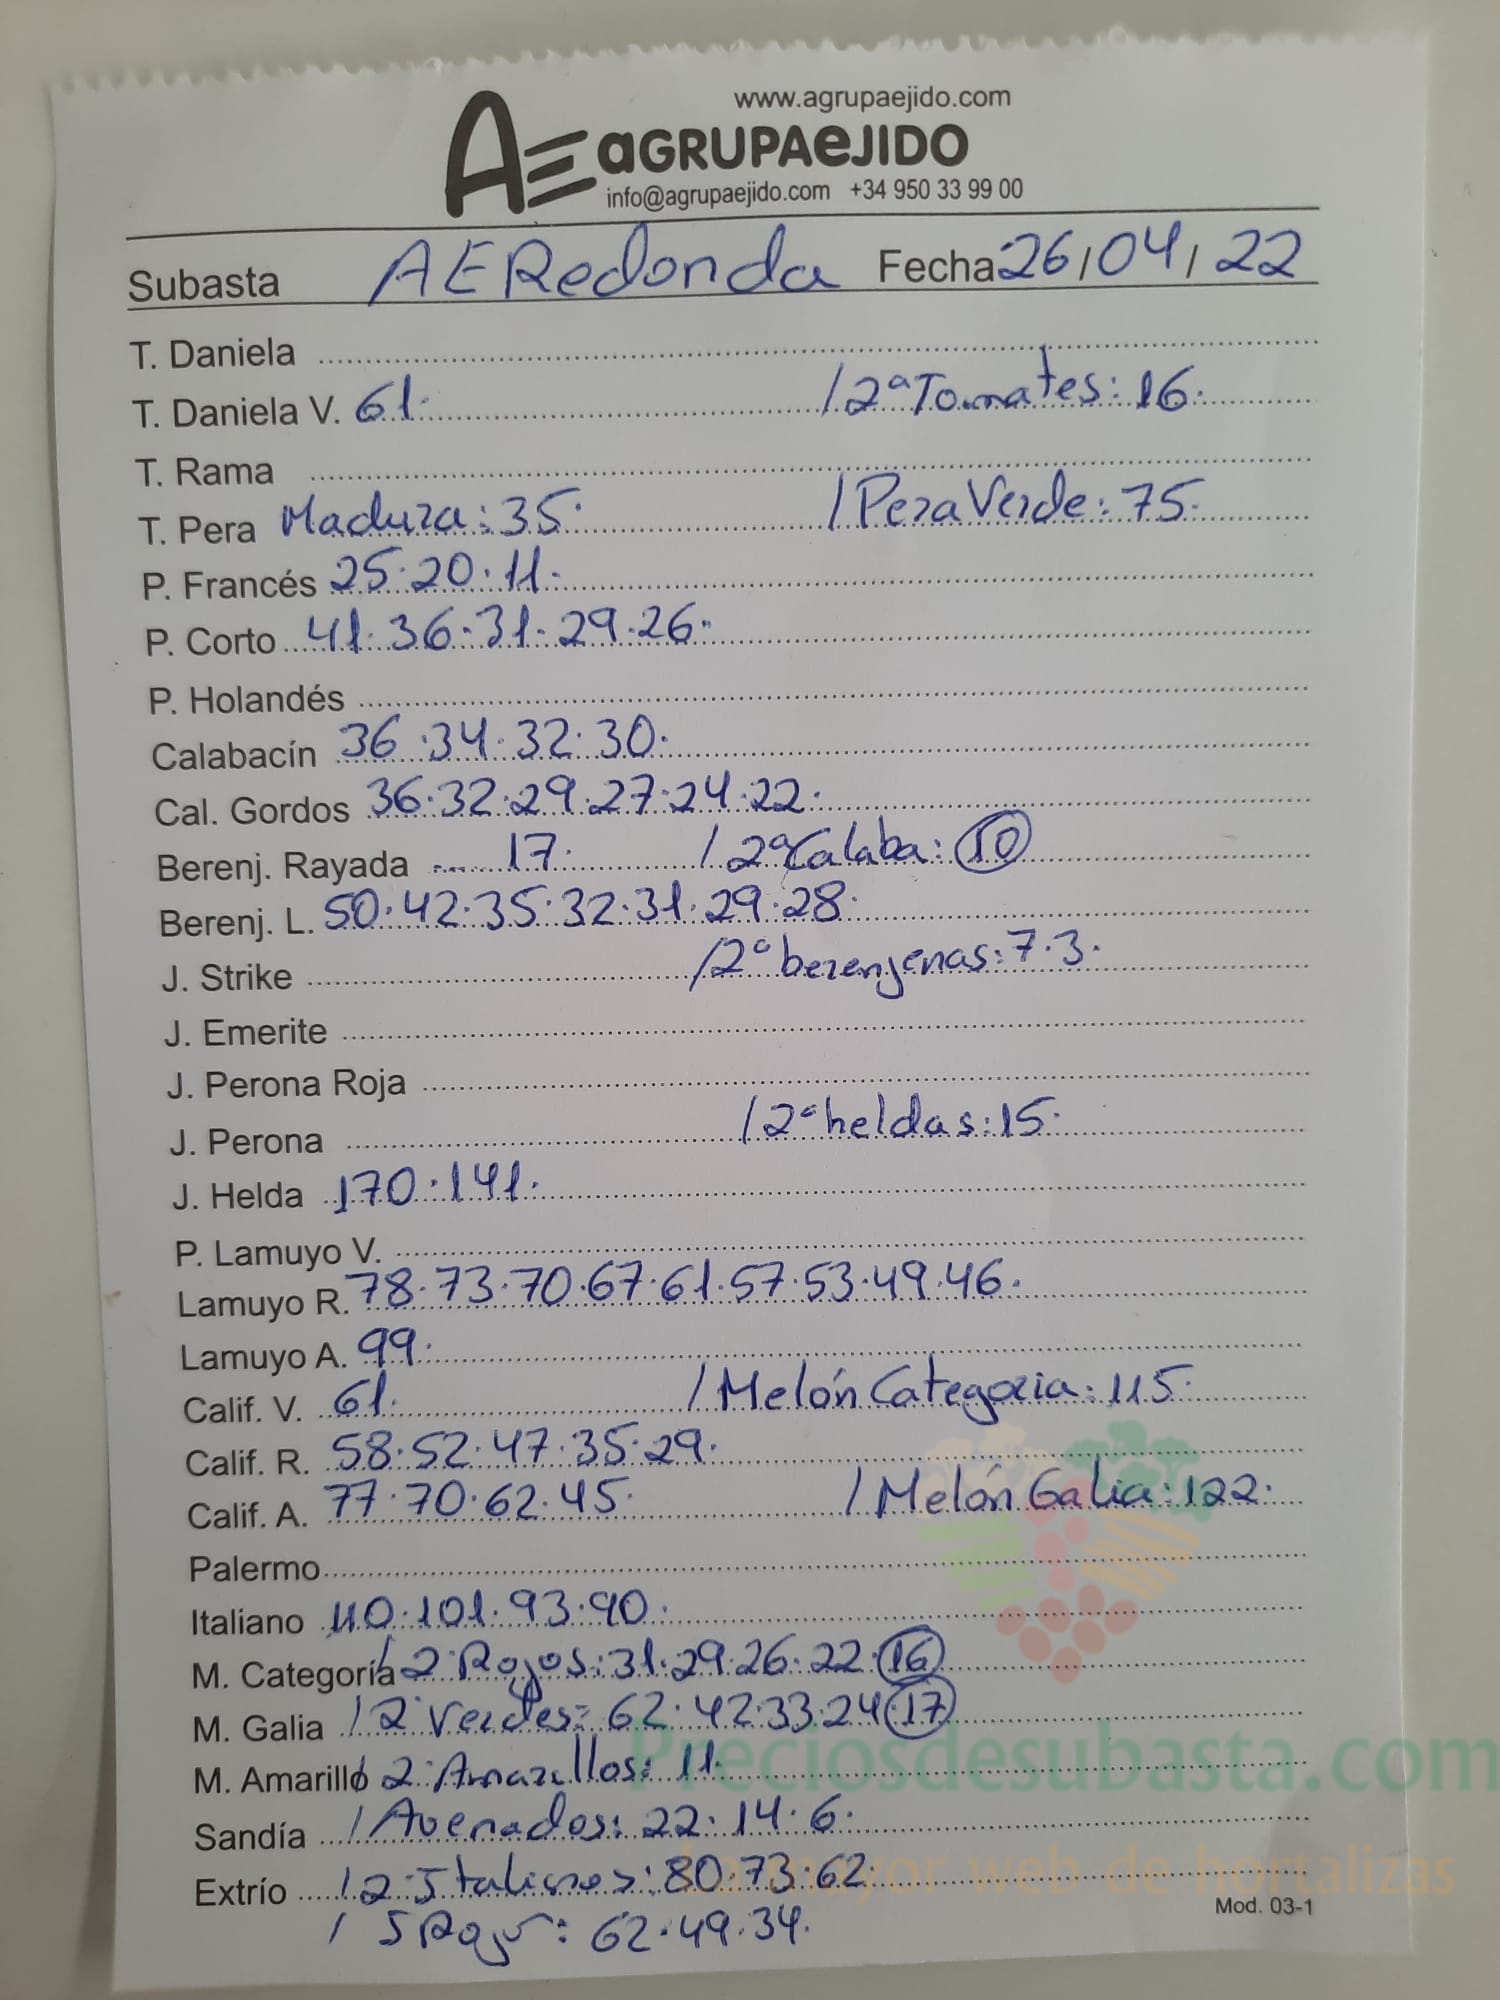 www.agrupaejido.com
AE aGRUPAeJIDO
info@agrupaejido.com +34 950 33 99 00
Subasta AERedonda Fecha 26/04/22
T. Daniela
T. Daniela V. 61. / 2ª Tomates: 16.
T. Rama
T. Pera Madura: 35. / Pera Verde: 75.
P. Francés 25.20.11.
P. Corto 41.36.31.29.26.
P. Holandés
Calabacín 36.34.32.30.
Cal. Gordos 36.32.29.27.24.22.
Berenj. Rayada 17. / 2ª Calaba: 10
Berenj. L. 50.42.35.32.31.29.28.
J. Strike / 2ª berenjenas: 7.3.
J. Emerite
J. Perona Roja
J. Perona / 2ª heldas: 15.
J. Helda 170.141.
P. Lamuyo V.
Lamuyo R. 78.73.70.67.61.57.53.49.46.
Lamuyo A. 99.
Calif. V. 61. / Melón Categoria: 115.
Calif. R. 58.52.47.35.29.
Calif. A. 77.70.62.45. / Melón Galia: 122.
Palermo
Italiano 110.101.93.90.
M. Categoría / 2ª Rojos: 31.29.26.22.16
M. Galia / 2ª Verdes: 62.42.33.24.17
M. Amarillo / 2ª Amarillos: 11.
Preciosdesubasta.com
Sandía / Avenados: 22.14.6.
Extrío / 2ª Italianos: 80.73.62.
mayor web de hortalizas
Mod. 03-1
/ 5 Rojos: 62.49.34.